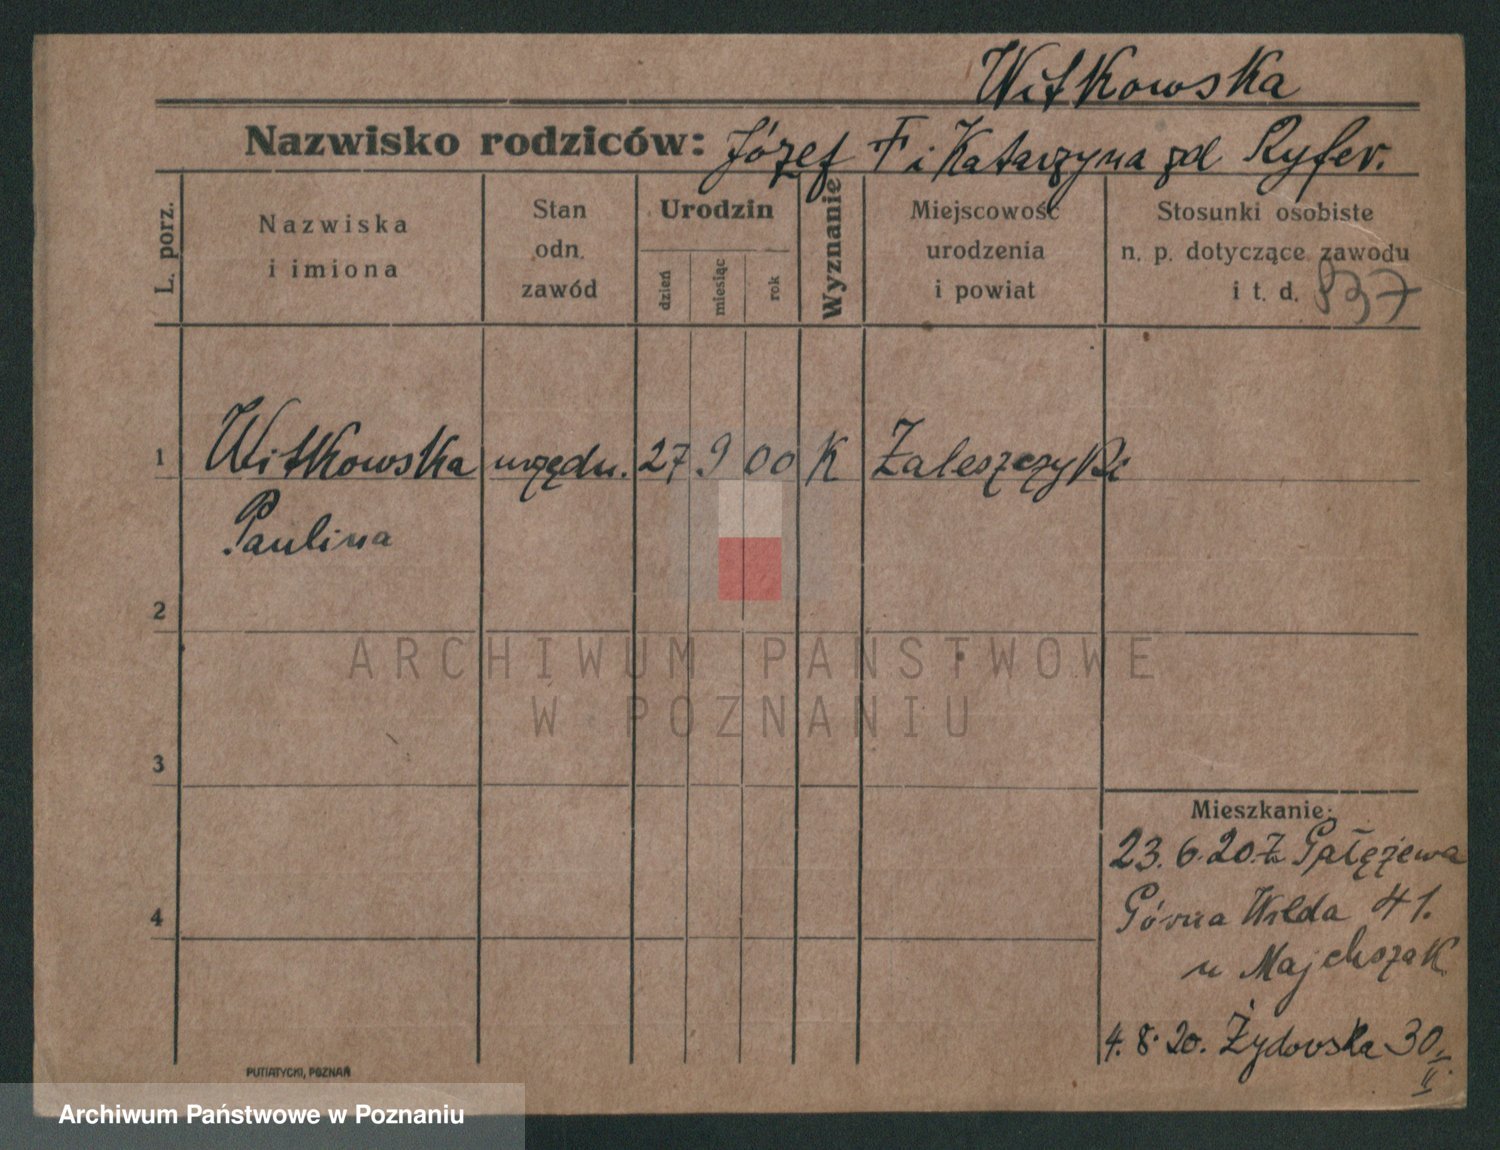 Witkowska
Nazwisko rodziców: Józef F i Katarzyna zd Ryfer.
L. porz.
Nazwiska
i imiona
Stan
odn.
zawód
Urodzin
dzień
miesiąc
rok
Wyznanie
Miejscowość
urodzenia
i powiat
Stosunki osobiste
n. p. dotyczące zawodu
i t. d. 937
1 Witkowska urzędn. 27 9 00 K Zaleszczyki
Paulina
2
ARCHIWUM PAŃSTWOWE
W POZNANIU
3
Mieszkanie:
23. 6. 20. z Gałężewa
4
Górna Wilda 41.
u Majchszak
4. 8. 20. Żydowska 30
II
PUTIATYCKI, POZNAŃ
Archiwum Państwowe w Poznaniu